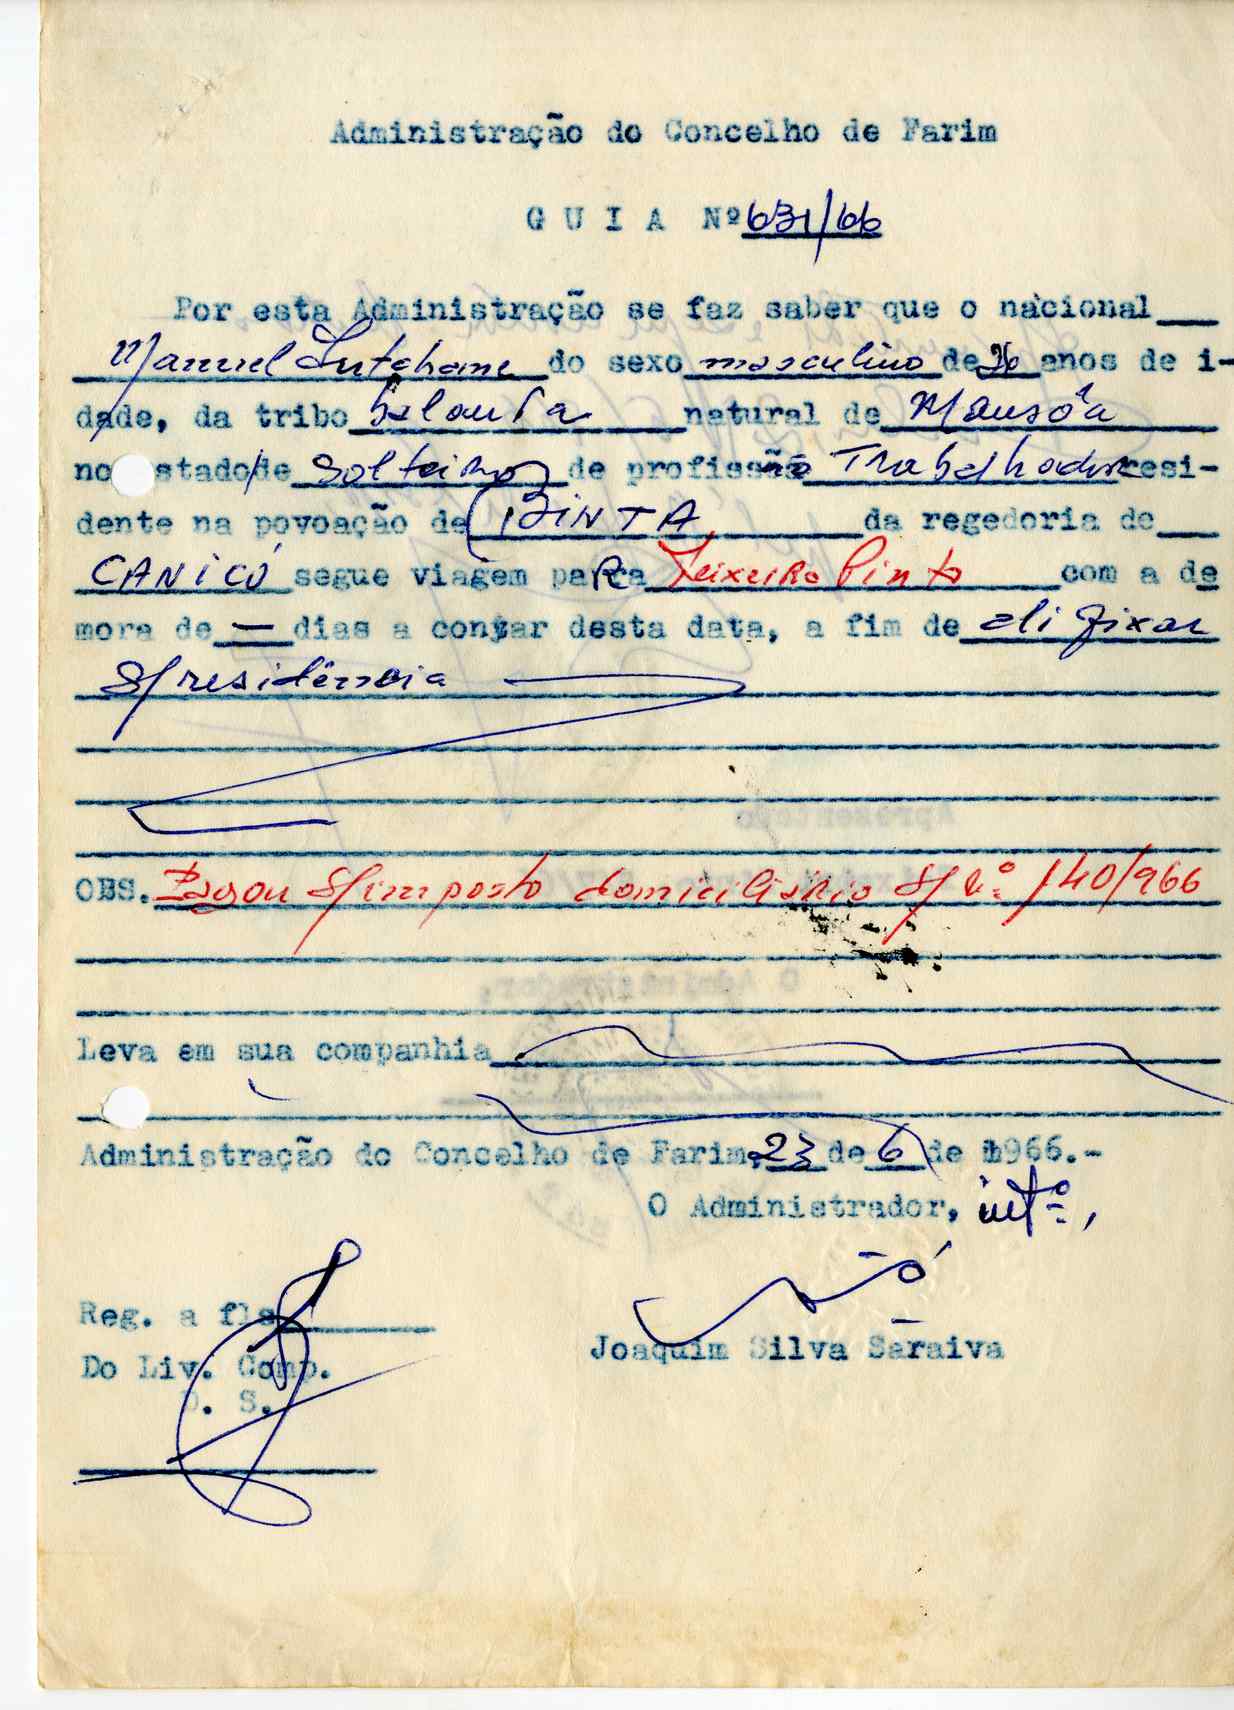 Administração do Concelho de Farim
G U I A Nº 631/66
Por esta Administração se faz saber que o nacional
Manuel do sexo masculino de anos de i-
dade, da tribo balanta natural de Mansôa
no stado de Solteiro de profissão Trabalhador resi-
dente na povoação de BINTA da regedoria de
CANICÓ segue viagem para Teixeira Pinto com a de
mora de — dias a contar desta data, a fim de ali fixar
s/ residência
OBS. Pagou s/ imposto domiciliário 140/966
Leva em sua companhia
Administração do Concelho de Farim, 23 de 6 de 1966.-
O Administrador, intº,
Joaquim Silva Saraiva
Reg. a fls
Do Liv. Comp.
D. S.
Apresentado
O Administrador,